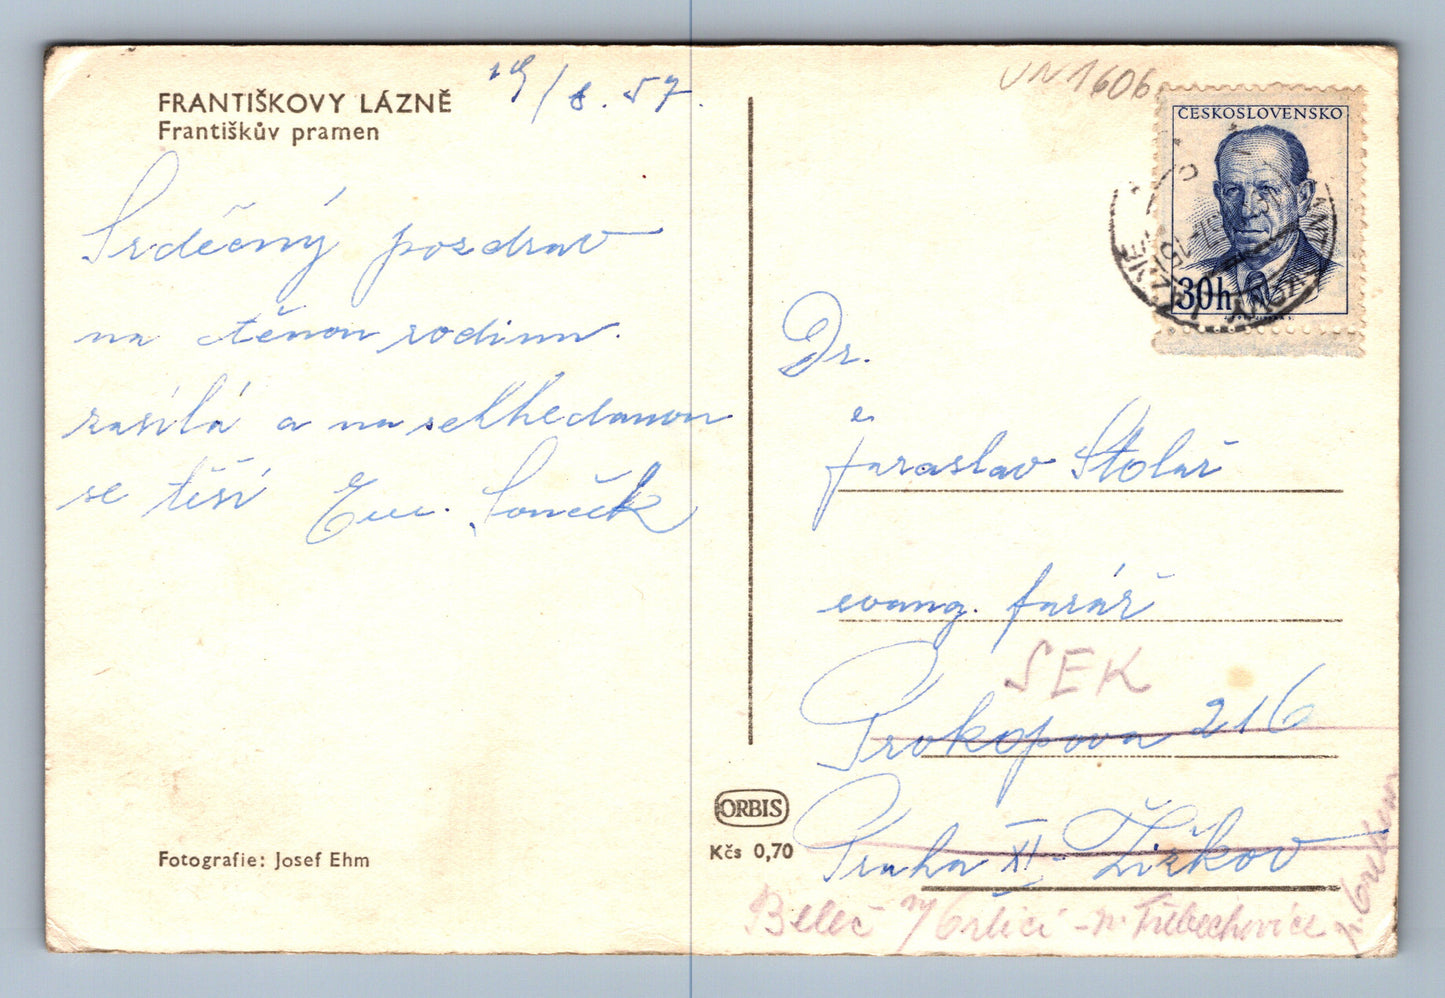 FRANTIŠKOVY LÁZNĚ
Františkův pramen
19/8. 57.
UN1606
ČESKOSLOVENSKO
30h
Srdečný pozdrav
na ctěnou rodinu.
zasílá a na selhledanou
se těší Souček
Dr.
Jaroslav Stolař
evang. farář
SEK
Prokopova 216
Praha XI - Žižkov
Beleč n/Orlicí - p. Třebechovice
ORBIS
Kčs 0,70
Fotografie: Josef Ehm